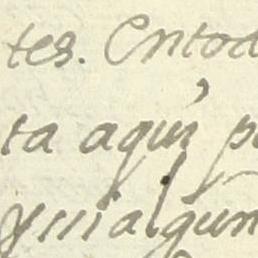 tes. Entod
ta aqui p
y ni algun